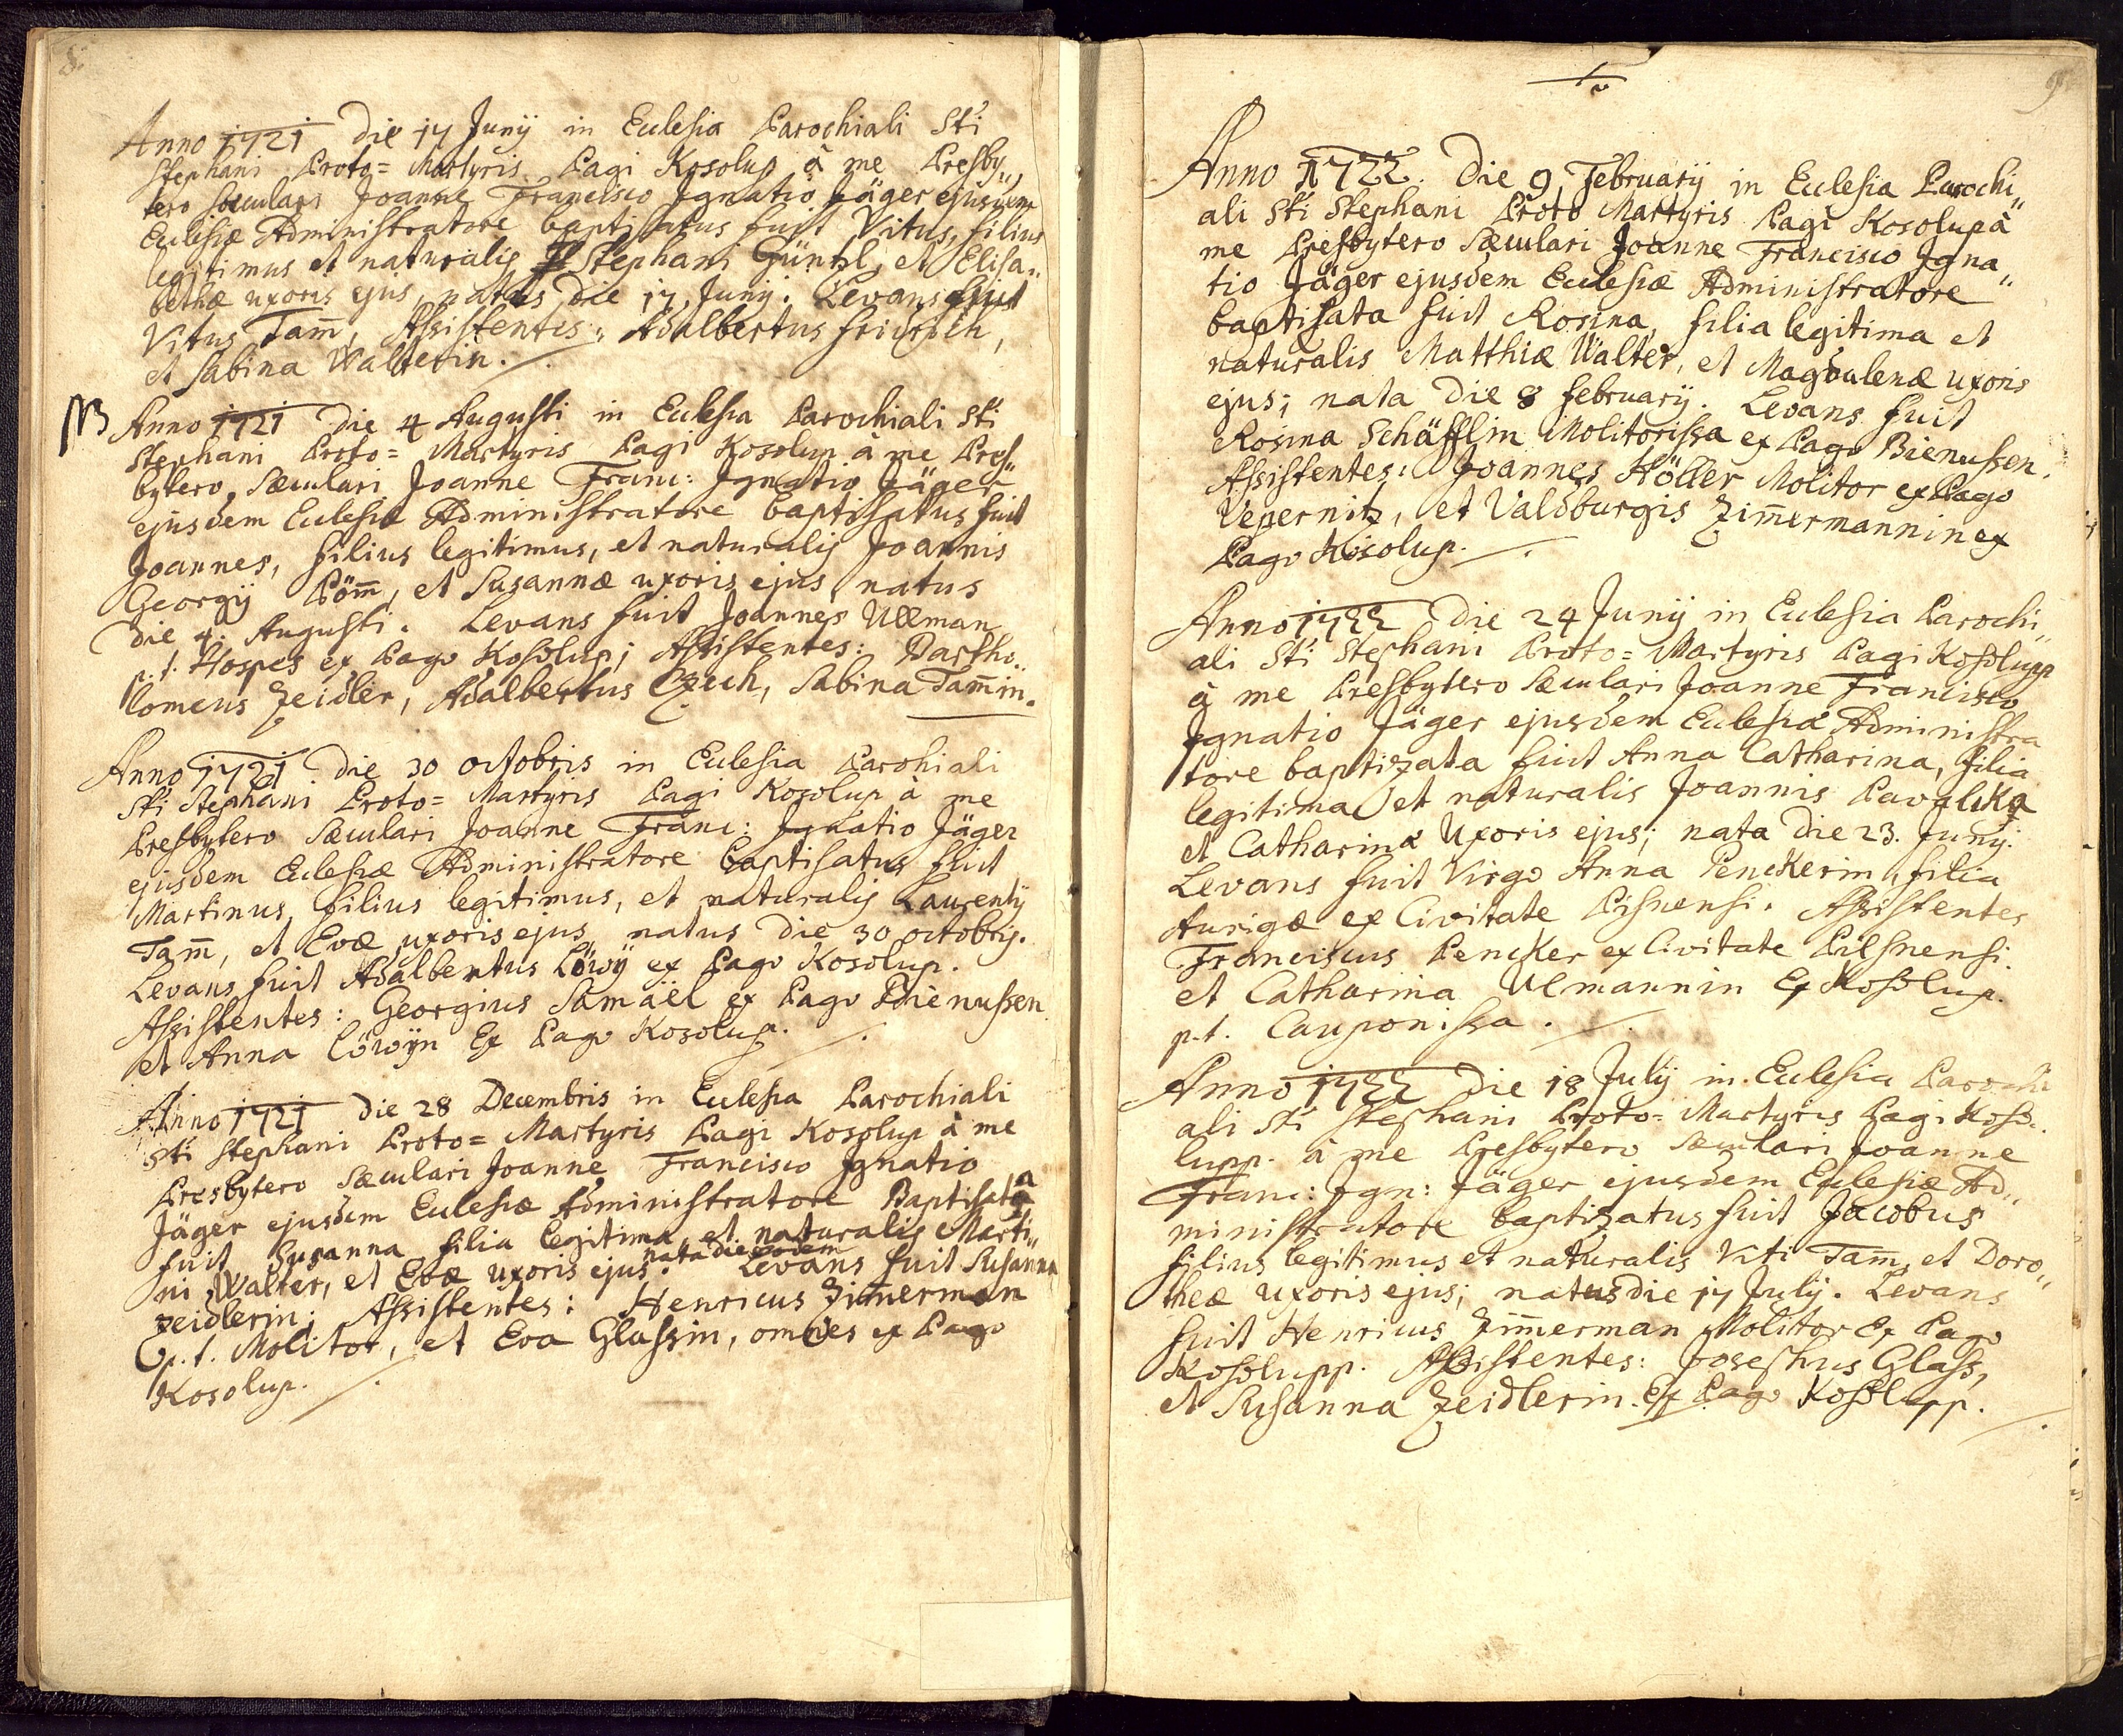 8.
Anno 1721 Die 17 Junÿ in Eclesia Parochiali Sti
Stephani Proto= Martyris Pagi Kosolup à me Presby„
tero Sæculari Joanne Francisco Ignatio Jäger ejusdem
Eclesiæ Administratore baptisatus fuit Vitus, filius
legitimus et naturalis Stephani Güntzl, et Elisa„
bethæ uxoris ejus, natus Die 17 Junÿ. Levans fuit
Vitus Tam̄, Assistentes: Adalbertus Fridrich,
et Sabina Walterin.
NB Anno 1721 Die 4 Augusti in Eclesia Parochiali Sti
Stephani Proto= Martyris Pagi Kosolup à me Pres„
bytero Sæculari Joanne Franc: Ignatio Jäger
ejusdem Eclesiæ Administratore baptisatus fuit
Joannes, filius legitimus, et naturalis Joannis
Georgÿ Pöm̄, et Susannæ uxoris ejus, natus
Die 4. Augusti. Levans fuit Joannes Ullman
p.t. Hospes ex Pago Kosolup; Assistentes: Bartho„
lomeus Zeidler, Adalbertus Czech, Sabina Tam̄in.
Anno 1721 Die 30 octobris in Eclesia Parohiali
Sti Stephani Proto= Martyris Pagi Kosolup à me
Presbytero Sæculari Joanne Franc: Ignatio Jäger
ejusdem Eclesiæ Administratore baptisatus fuit
Martinus, filius legitimus, et naturalis Laurentÿ
Tam̄, et Evæ uxoris ejus, natus Die 30 octobris.
Levans fuit Adalbertus Löwÿ ex Pago Kosolup.
Assistentes: Georgius Samäel ex Pago Bienussen
et Anna Löwÿn Ex Pago Kosolup.
Anno 1721 Die 28 Decembris in Eclesia Parochiali
Sti Stephani Proto= Martyris Pagi Kosolup à me
Presbytero Sæculari Joanne Francisco Ignatio
Jäger ejusdem Eclesiæ Administratore Baptisata
fuit Susanna filia legitima, et naturalis Marti„
ni Walter, et Evæ uxoris ejus nata die eodem. Levans fuit Susanna
Zeidlerin; Assistentes: Henricus Zimerman
p.t. Molitor, et Eva Glassin, omnes ex Pago
Kosolup.
9.
Anno 1722. Die 9 Februarÿ in Eclesia Parochi„
ali Sti Stephani Proto Martyris Pagi Kosolup à
me Presbytero Sæculari Joanne Francisco Igna„
tio Jäger ejusdem Eclesiæ Administratore
baptisata fuit Rosina, filia legitima et
naturalis Matthiæ Walter, et Magdalenæ uxoris
ejus; nata Die 8 februarÿ. Levans fuit
Rosina Schäfflin Molitorissa ex Pago Bienussen.
Assistentes: Joannes Höller Molitor ex Pago
Vepernitz, et Valdburgis Zim̄ermannin ex
Pago Kosolup.
Anno 1722 Die 24 Junÿ in Eclesia Parochi„
ali Sti Stephani Proto= Martyris Pagi Kosolupp
à me Presbytero Sæculari Joanne Francisco
Ignatio Jäger ejusdem Eclesiæ Administra
tore baptizata fuit Anna Catharina, filia
legitima et naturalis Joannis Pavalka
et Catharinæ Uxoris ejus; nata die 23. Junÿ.
Levans fuit Virgo Anna Penckerin, filia
Aurigæ ex Civitate Pisnensi. Assistentes
Franciscus Pencker ex Civitate Pilsnensi.
et Catharina Ulmannin Ex Kosolup.
p.t. Cauponissa.
Anno 1722 Die 18 Julÿ in Eclesia Parochi
ali Sti Stephani Proto= Martyris Pagi Koso„
lupp. à me Presbytero Sæculari Joanne
Franc: Ign: Jäger ejusdem Eclesiæ Ad„
ministratore baptizatus fuit Jacobus
filius legitimus et naturalis Viti Tam̄, et Doro„
theæ uxoris ejus; natus die 17 Julÿ. Levans
fuit Henricus Zim̄erman Molitor Ex Pago
Kosolupp. Assistentes: Josephus Glass,
et Susanna Zeidlerin. Ex Pago Kosolupp.